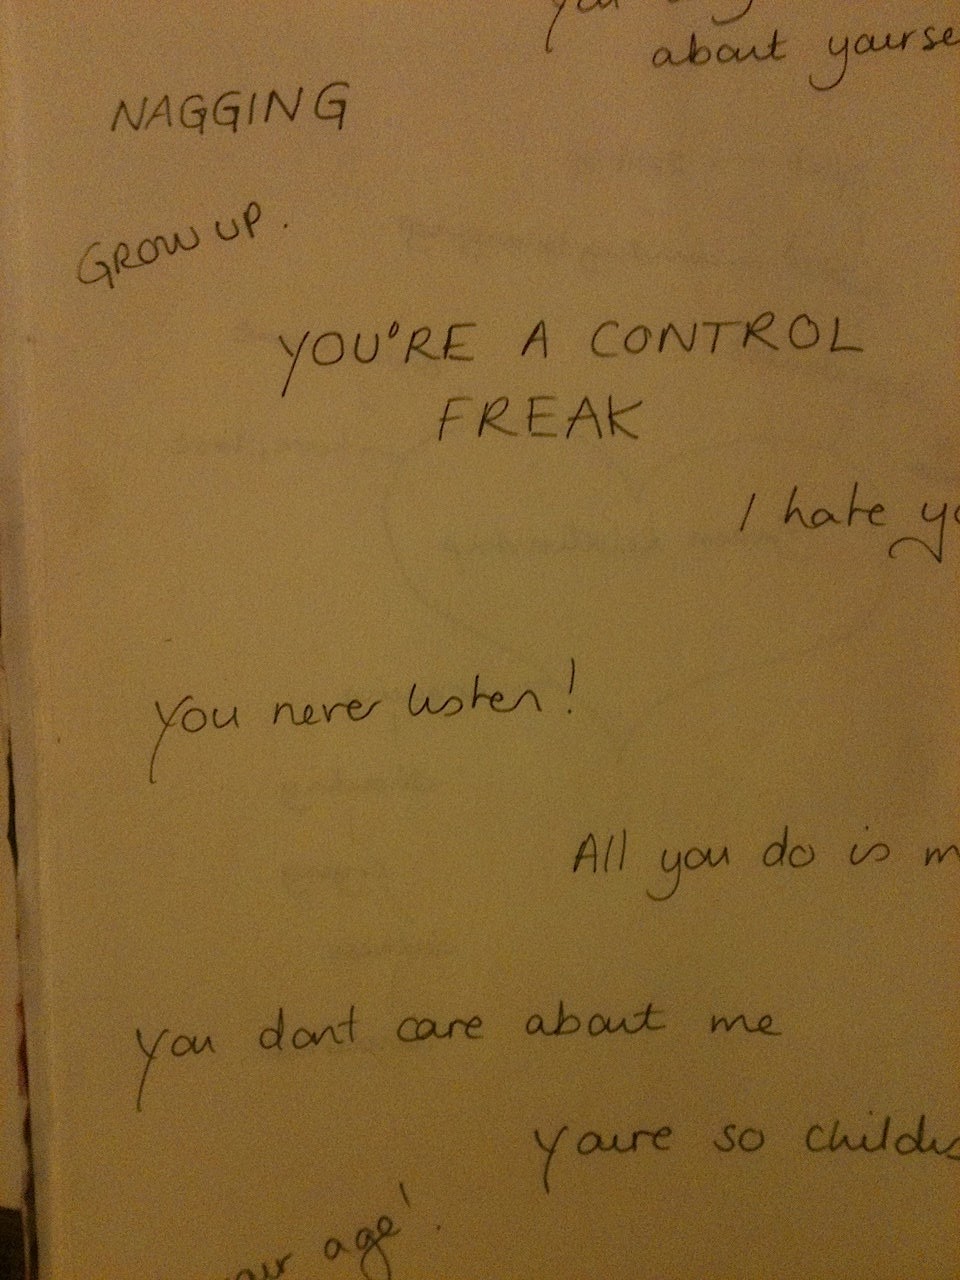 about yourse
NAGGING
GROW UP.
YOU'RE A CONTROL
FREAK
I hate yo
You never listen!
All you do is m
You dont care about me
Youre so childis
age'.